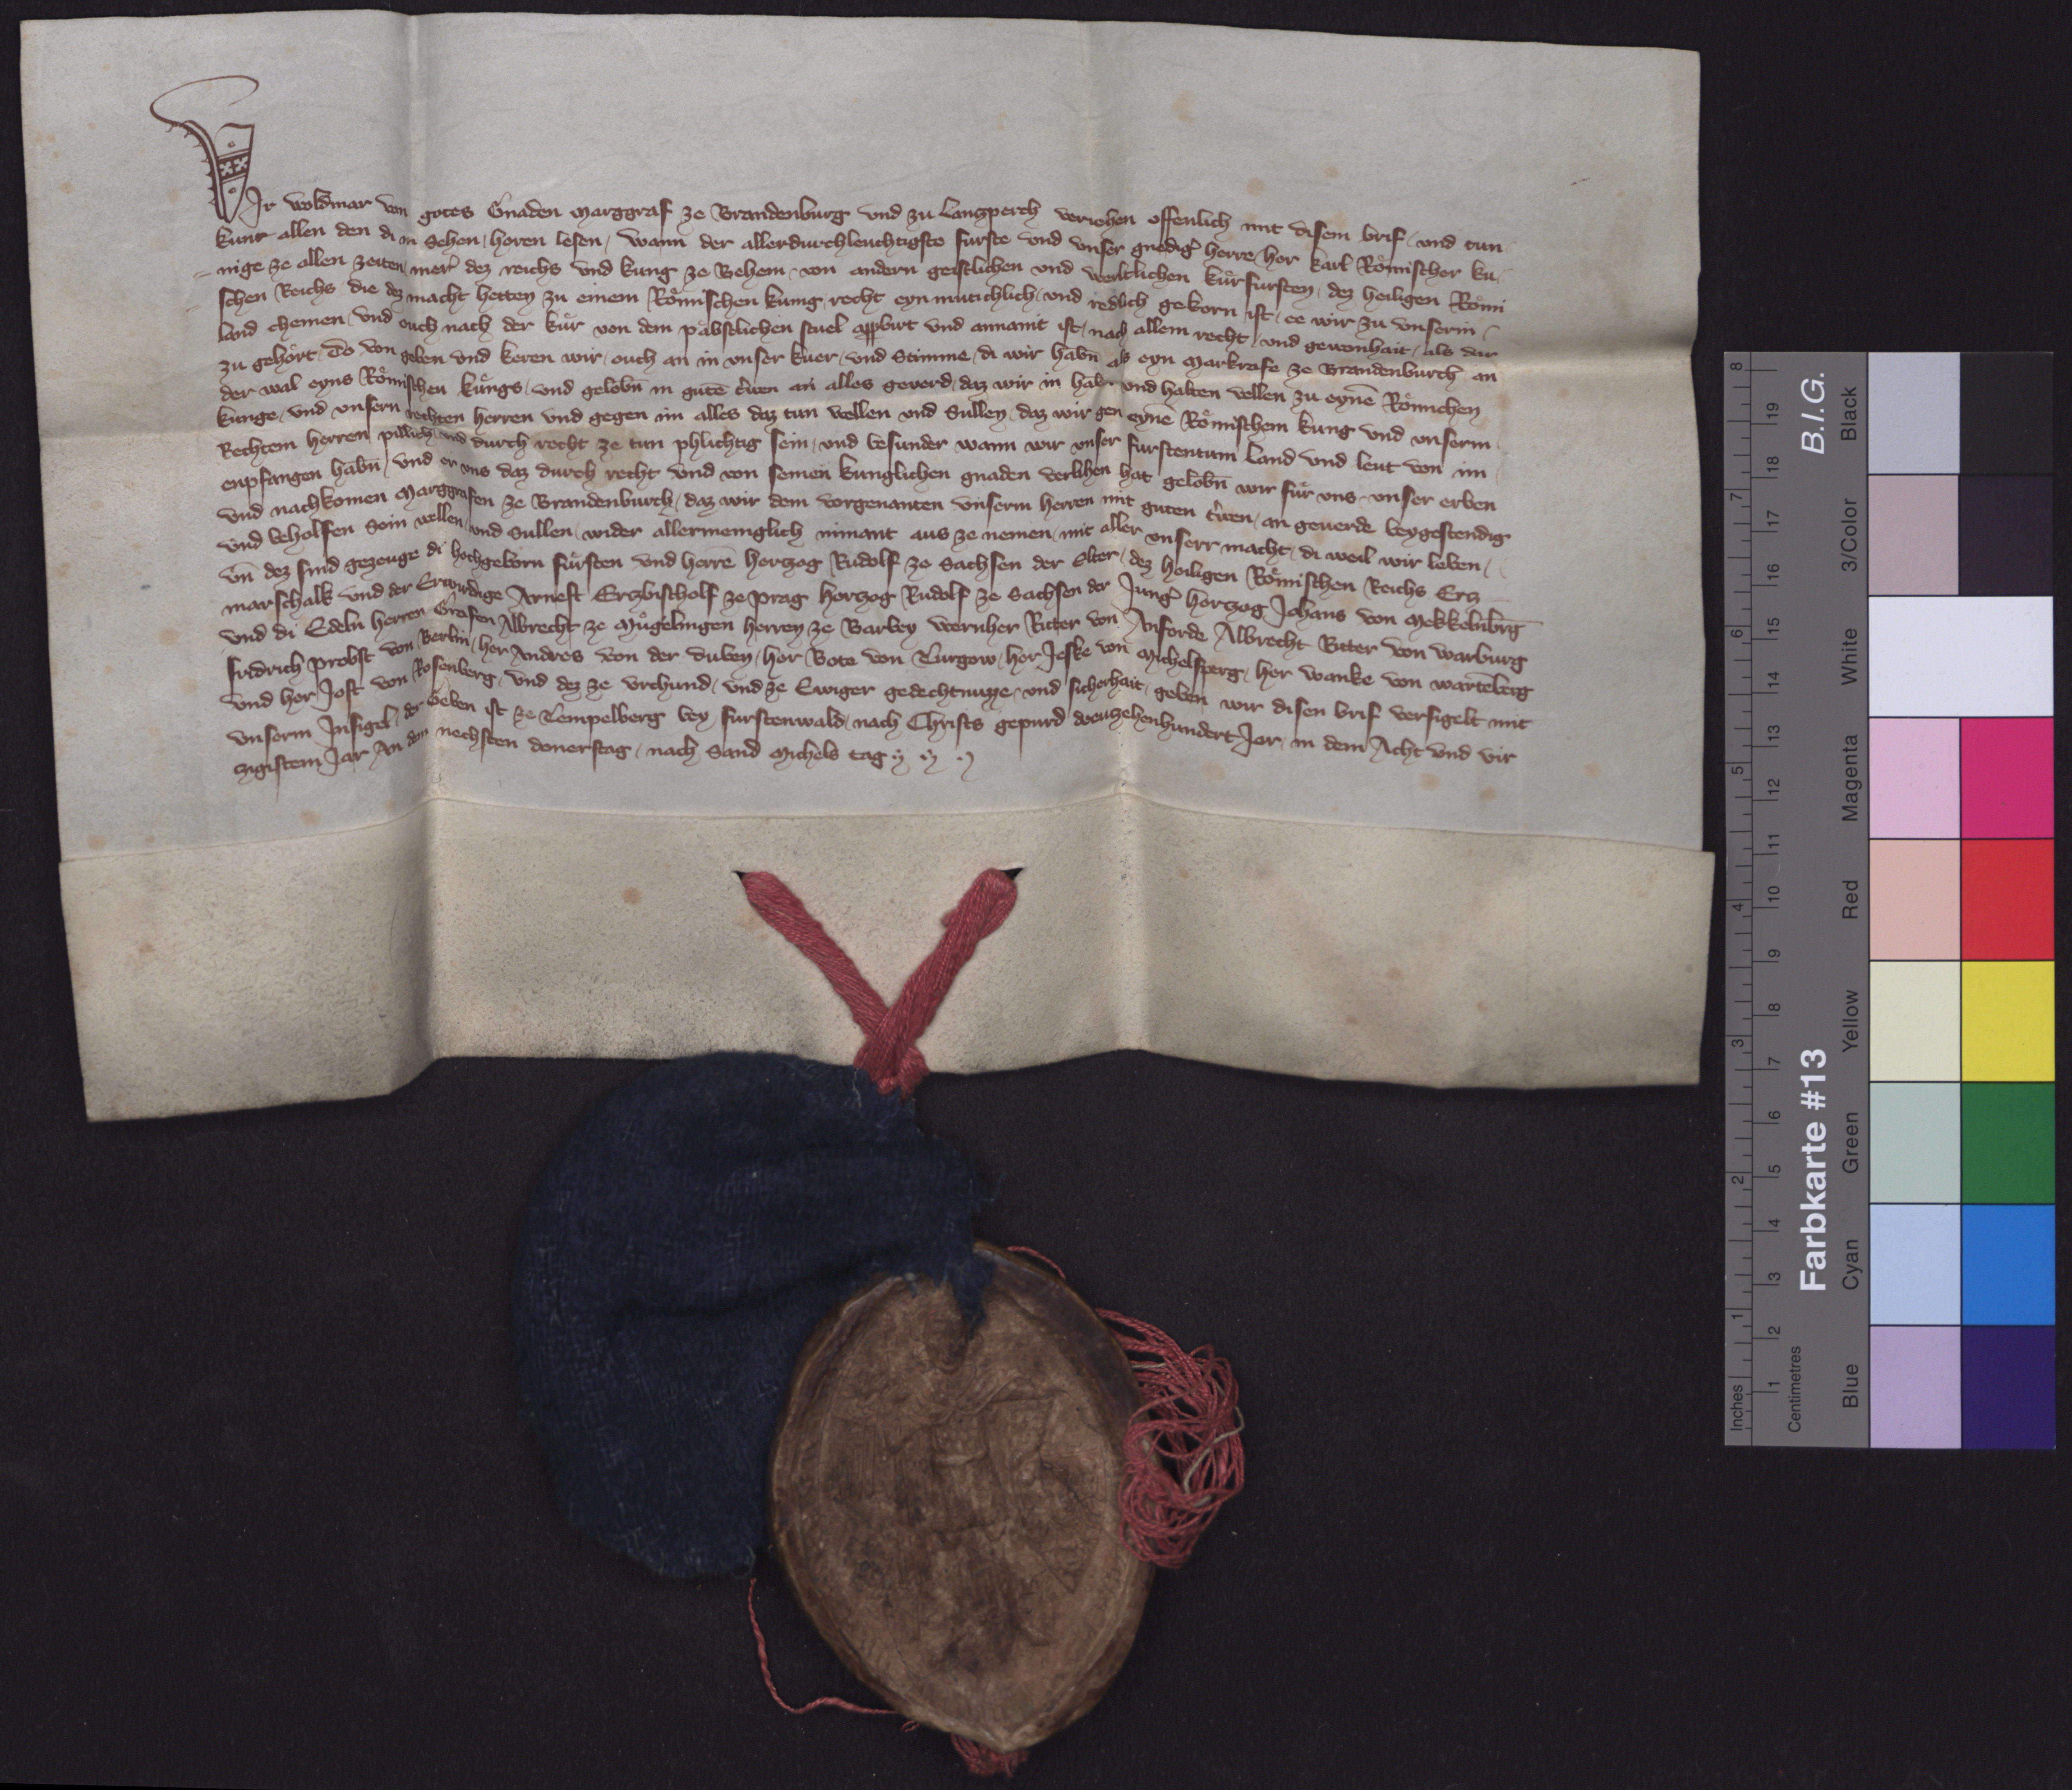 Wir woldmar von gotes Gnaden Marggraf ze Brandenburg und zu Lanzperch veriehen offenlich mit disem brif / und tun
kunt allen den di in Sehen / horen lesen / Wann der allerdurchleuchtigste furste und unser gnedig' herre / her Karl Romischer ku-
-nige ze allen zeiten / merer dez reichs und kung ze Behem / von andern geistlichen und werltlichen kurfursten / dez heiligen Romi
schen Reichs die dez macht hetten zu einem Romischen kunig recht eynmutichlich / und redlich gekorn ist / ee wir zu unserm
Land chemen / und ouch nach der kur von dem pabstlichen stuel approbirt und annamit ist / nach allem recht / und gewonhait / als dar
zu gehort / Do von geben und keren wir / ouch an in unser kuer / und Stimme / di wir habn als eyn Markrafe ze Brandenburch an
der wal eyns Romischen kungs / und gelobn in gute trwen an alles geverd / daz wir in habn und halten vellen zu eyne Romichen
kunge / und unsern rechten herren und gegen im alles daz tun wellen und Sullen / daz wir gen eyne Romischem kung und unserm
Rechtem herren pillich und durch recht ze tun phlichtig sein / und besunder wann wir unser furstentum Land und leut von im
enpfangen habn / und er uns daz durch recht und von seinen kunglichen gnaden verlihen hat gelobn wir fur uns unser erben
und nachkomen Marggrafen ze Brandenburch / daz wir dem vorgenanten unserm herren mit guten trwen / an geuerde beygestendig
und beholfen Sein wellen / und Sullen / wider allermeniglich nimant aus ze nemen / mit aller unserr macht / di weil wir leben /
Un dez sind gezeuge di hochgeborn fursten und herre hertzog Rudolf ze Sachsen der Elter / dez heiligen Romischen Reichs Ertz
marschalk und der Erwirdige Arnest Erczbischolf ze Prag hertzog Rudolf ze Sachsen der Jung' hertzog Johans von Mekkelnbrg
und di Edeln herren Grafen Albrecht ze Mugelingen herren ze Barbey Wernher Ritter von Anforde Albrecht Ritter von Warburg
Fridrich probst von Berlin / her Andres von der duben / her Bote von Turgow / her Jeske von Michelsperg / her Wanke von Wartenberg
und her Jost von Rosenberg / und dez ze urchund / und ze Ewiger gedechtnuzze / und sicherhait / geben wir disen brif versigelt mit
unserm Jnsigel / der Geben ist ze Tempelberg bey furstenwald / nach Christs gepurd dreuzehenhundert Jor / in dem Acht und vir
czigistem Jar An dem nechsten donerstag / nach Sand Michels tag
Inches 1 2 3 4 5 6 7 8
Centimetres 1 2 3 4 5 6 7 8 9 10 11 12 13 14 15 16 17 18 19
Farbkarte #13
B.I.G.
Blue Cyan Green Yellow Red Magenta White 3/Color Black